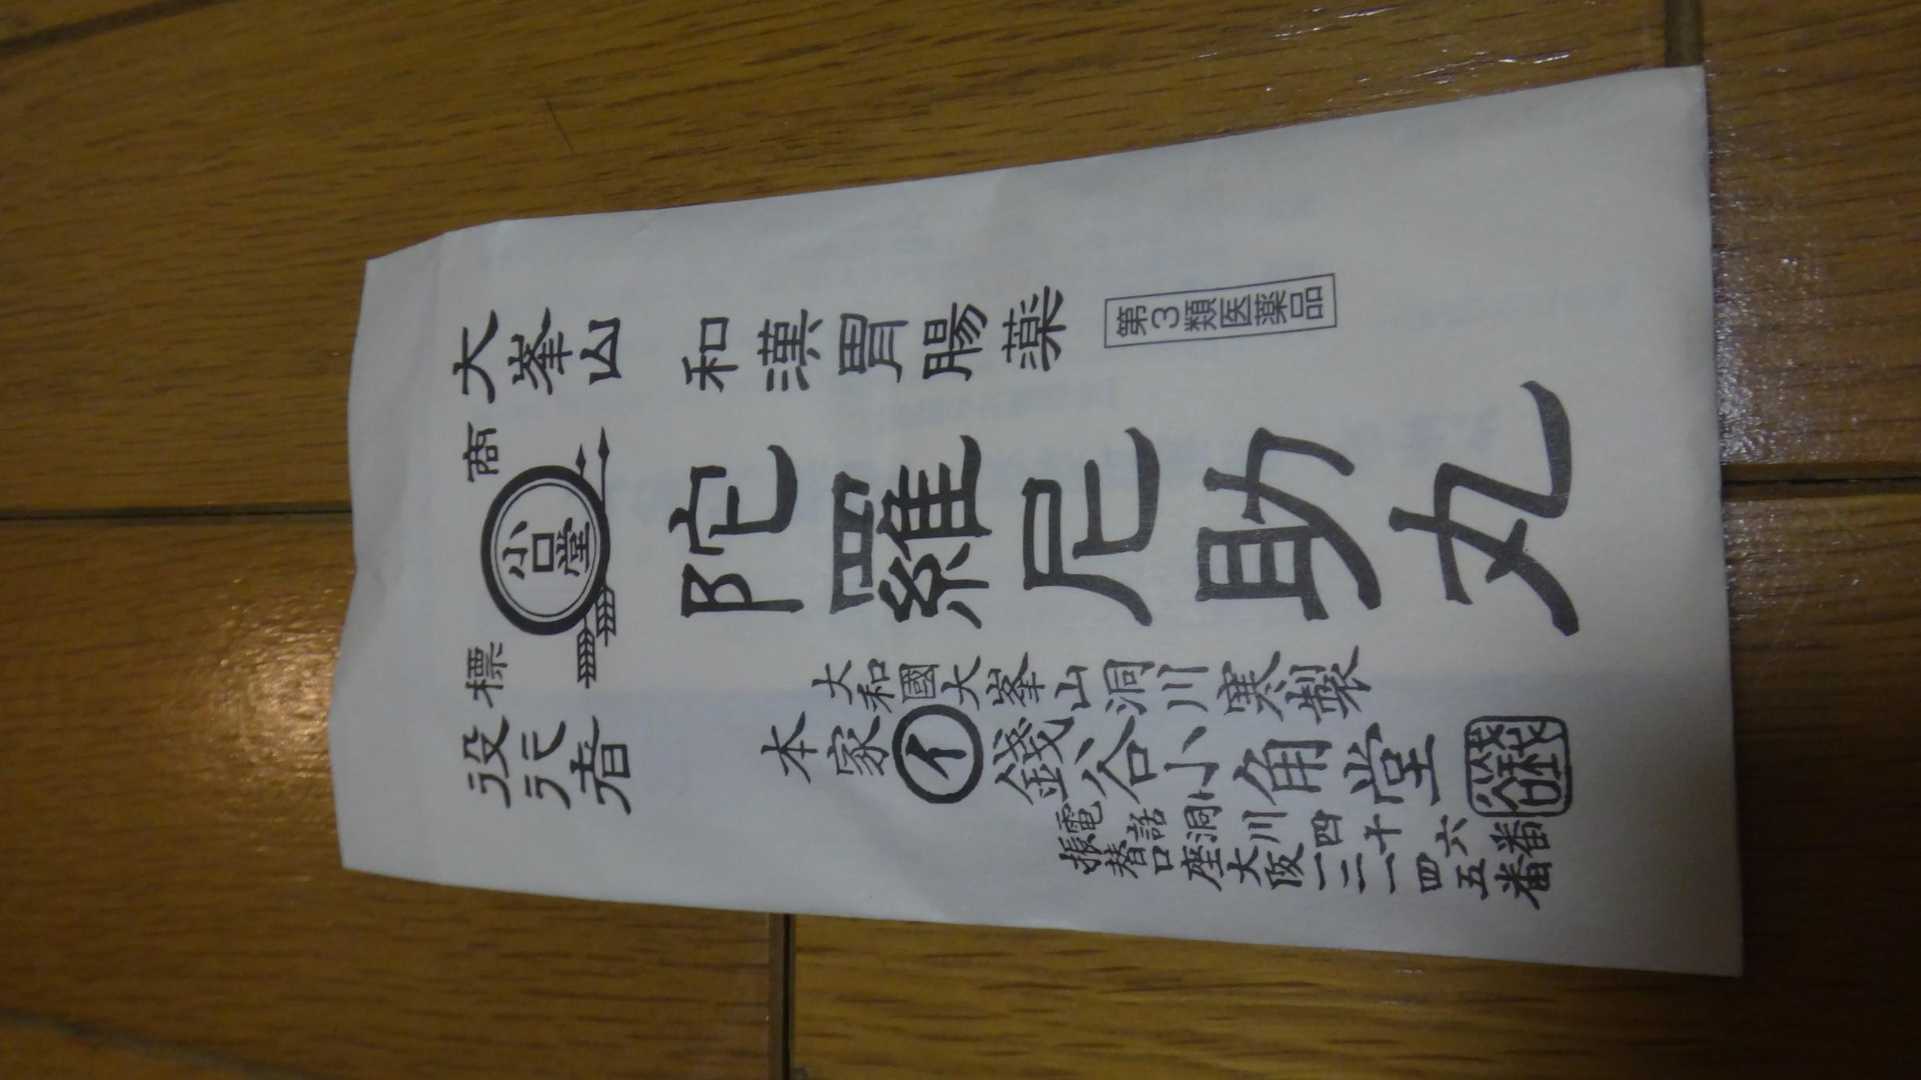 大峯山
商標
小口堂
役行者
和漢胃腸薬
第3類医薬品
陀羅尼助丸
大和國大峯山洞川寒製
本家
イ
錢谷小角堂
電話洞川四十六番
振替口座大阪一三一四五番